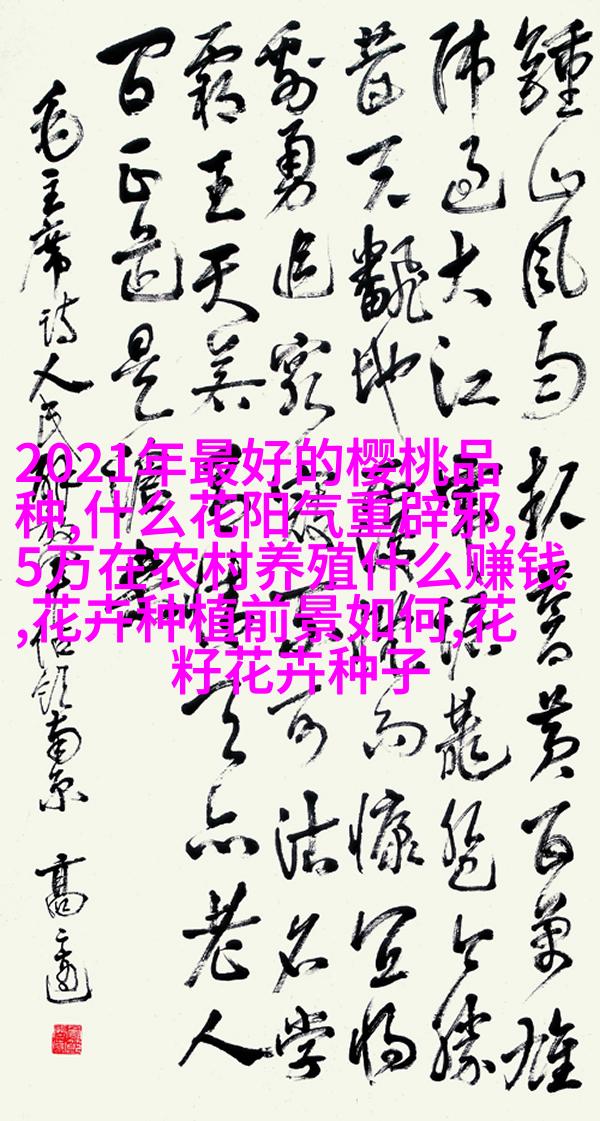 鍾山風雨起蒼黄百萬雄
师過大江虎踞龍盤今勝
昔天翻地覆慨而慷宜将
剩勇追窮寇不可沽名学
霸王天若有情天亦老人
间正道是滄桑
毛主席诗人民解放军佔领南京 高
2021年最好的樱桃品
种,什么花阳气重辟邪,
5万在农村养殖什么赚钱
,花卉种植前景如何,花
籽花卉种子